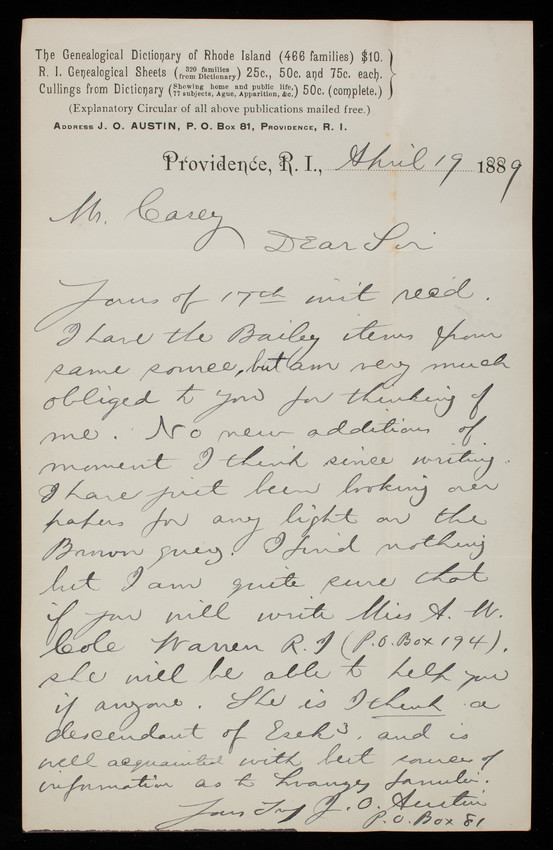 The Genealogical Dictionary of Rhode Island (466 families) $10.
R. I. Genealogical Sheets (320 families from Dictionary) 25c., 50c. and 75c. each.
Cullings from Dictionary (Showing home and public life, 77 subjects, Ague, Apparition, &c.) 50c. (complete.)
(Explanatory Circular of all above publications mailed free.)
Address J. O. AUSTIN, P. O. Box 81, Providence, R. I.
Providence, R. I., April 19 1889
Mr. Casey
Dear Sir
Yours of 17th inst rec'd.
I have the Bailey items from
same source, but am very much
obliged to you for thinking of
me. No new additions of
moment I think since writing.
I have just been looking over
papers for any light on the
Brown query. I find nothing
but I am quite sure that
if you will write Miss A. W.
Cole Warren R. I (P.O. Box 194).
she will be able to help you
if anyone. She is I think a
descendant of Esek3. and is
well acquainted with best sources of
information as to Swanzey families.
Yours Truly J. O. Austin
P.O. Box 81